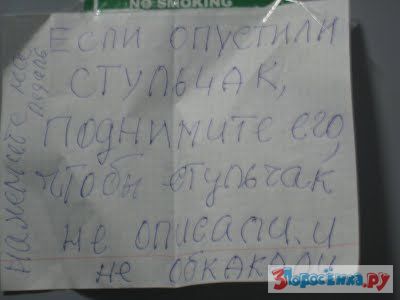 NO SMOKING
Если опустили
стульчак,
поднимите его,
чтобы стульчак
не описали и
не обкакали
нажмите на
педаль
3Поросёнка.ру